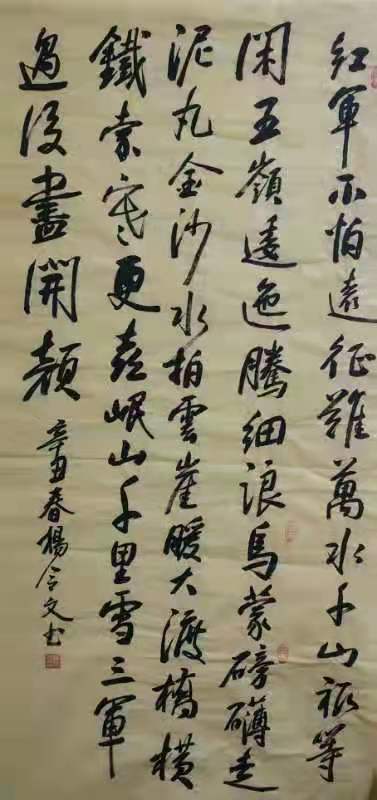 紅軍不怕遠征難萬水千山祇等
閑五嶺逶迤騰細浪烏蒙磅礴走
泥丸金沙水拍雲崖暖大渡橋橫
鐵索寒更喜岷山千里雪三軍
過後盡開顏
辛丑春楊令文书